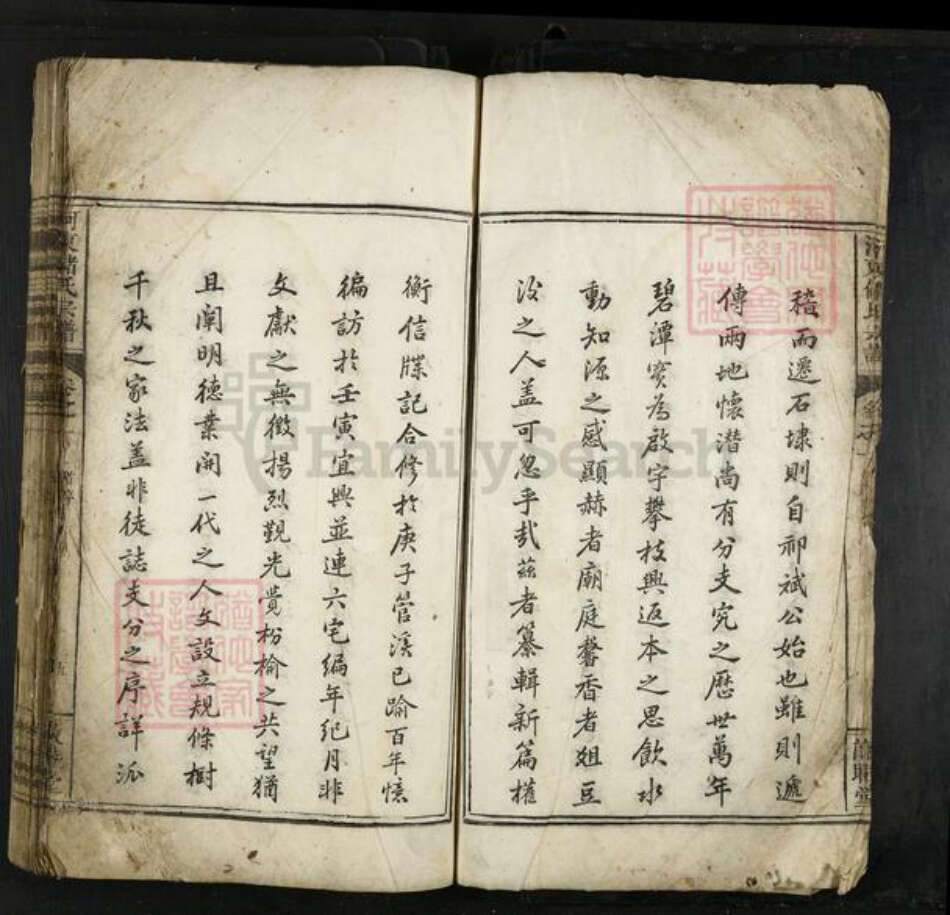 積而遷石埭則自祁斌公始也雖則遞
傳兩地懷潛尚有分支究之歷世萬年
碧潭實為啟宇攀枝興返本之思飲水
動知源之感顯赫者廟庭馨香者俎豆
後之人盖可忽乎哉茲者纂輯新篇權
衡信牒記合修於庚子管溪已踰百年憶
徧訪於壬寅宜興並連六宅編年紀月非
文獻之無徵揚烈覲光賞枌榆之共望猶
且闡明德業開一代之人文設立規條樹
千秋之家法盖非徒誌支分之序詳派
河東儲氏宗譜
FamilySearch